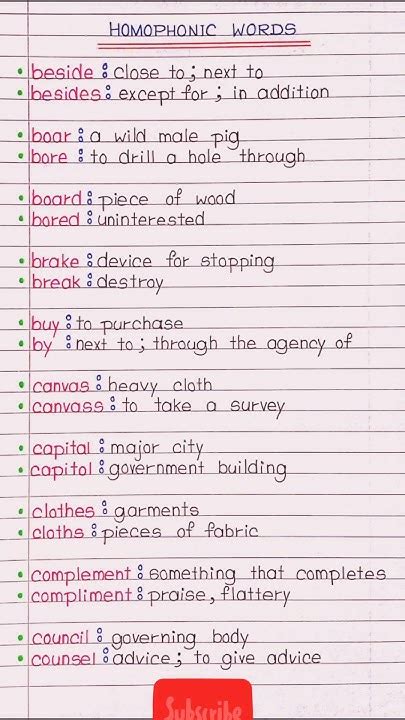 HOMOPHONIC WORDS
• beside : close to ; next to
• besides : except for ; in addition
• boar : a wild male pig
• bore : to drill a hole through
• board : piece of wood
• bored : uninterested
• brake : device for stopping
• break : destroy
• buy : to purchase
• by : next to ; through the agency of
• canvas : heavy cloth
• canvass : to take a survey
• capital : major city
• capitol : government building
• clothes : garments
• cloths : pieces of fabric
• complement : something that completes
• compliment : praise, flattery
• council : governing body
• counsel : advice ; to give advice
Subscribe